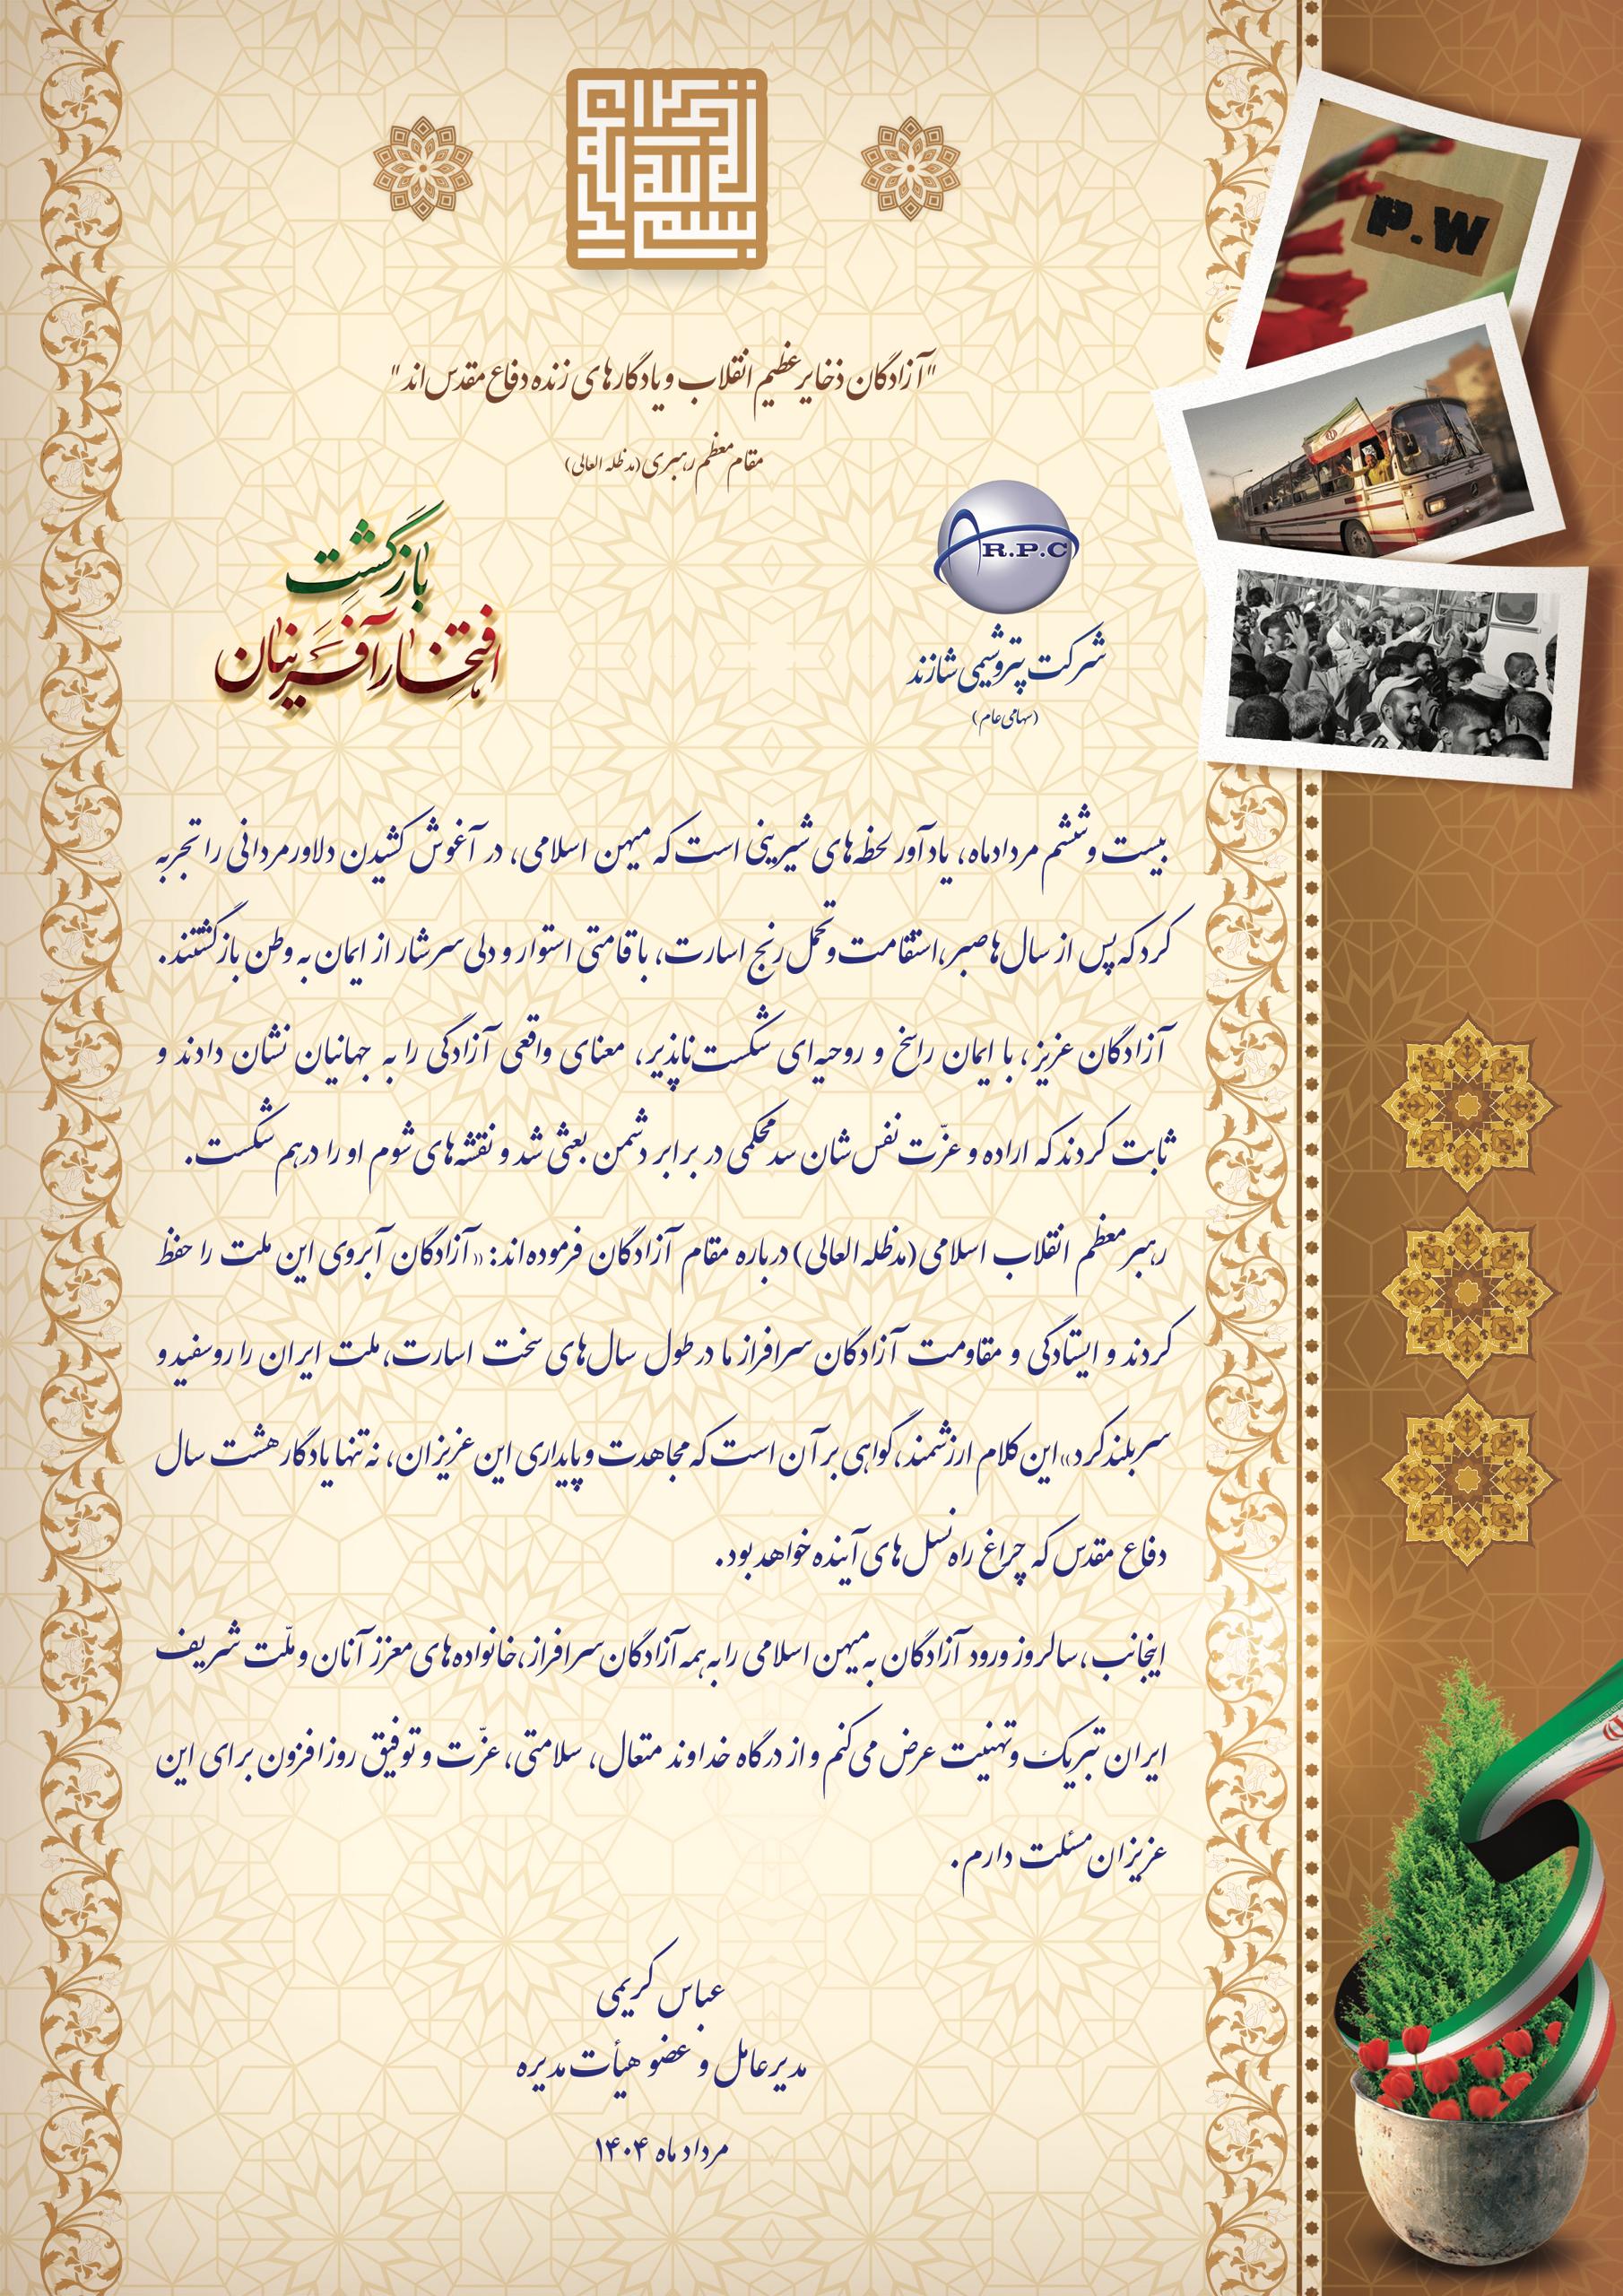 بسم الله الرحمن الرحیم
"آزادگان ذخایر عظیم انقلاب و یادگارهای زنده دفاع مقدس‌اند"
مقام معظم رهبری (مدظله العالی)
P.W
R.P.C
شرکت پتروشیمی شازند
(سهامی عام)
بازگشت
افتخارآفرینان
بیست و ششم مردادماه، یادآور لحظه‌های شیرینی است که میهن اسلامی، در آغوش کشیدن دلاورمردانی را تجربه
کرد که پس از سال‌ها صبر، استقامت و تحمل رنج اسارت، با قامتی استوار و دلی سرشار از ایمان به وطن بازگشتند.
آزادگان عزیز، با ایمان راسخ و روحیه‌ای شکست‌ناپذیر، معنای واقعی آزادگی را به جهانیان نشان دادند و
ثابت کردند که اراده و عزّت نفس‌شان سد محکمی در برابر دشمن بعثی شد و نقشه‌های شوم او را درهم شکست.
رهبر معظم انقلاب اسلامی (مدظله العالی) درباره مقام آزادگان فرموده‌اند: «آزادگان آبروی این ملت را حفظ
کردند و ایستادگی و مقاومت آزادگان سرافراز ما در طول سال‌های سخت اسارت، ملت ایران را روسفید و
سربلند کرد» این کلام ارزشمند، گواهی بر آن است که مجاهدت و پایداری این عزیزان، نه تنها یادگار هشت سال
دفاع مقدس که چراغ راه نسل‌های آینده خواهد بود.
اینجانب، سالروز ورود آزادگان به میهن اسلامی را به همه آزادگان سرافراز، خانواده‌های معزز آنان و ملّت شریف
ایران تبریک و تهنیت عرض می‌کنم و از درگاه خداوند متعال، سلامتی، عزّت و توفیق روزافزون برای این
عزیزان مسئلت دارم.
عباس کریمی
مدیرعامل و عضو هیأت مدیره
مرداد ماه ۱۴۰۴